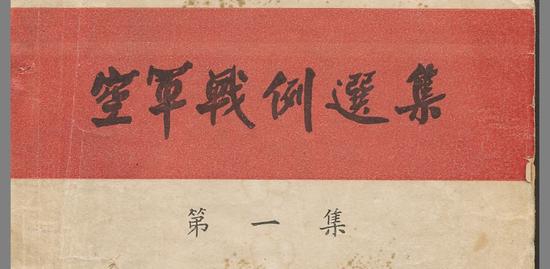 空軍戰例選集
第一集